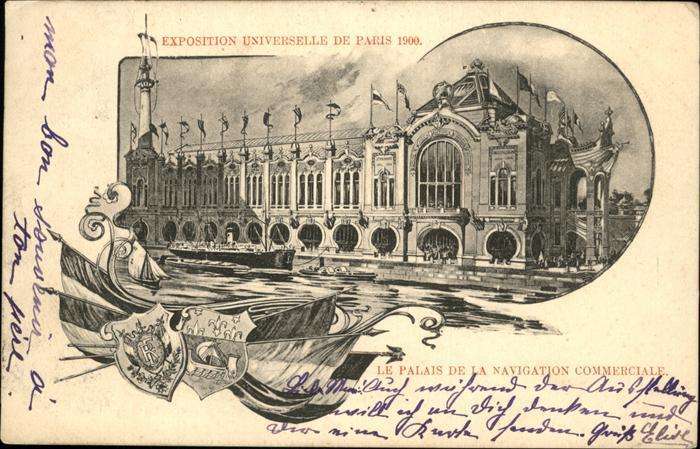 EXPOSITION UNIVERSELLE DE PARIS 1900.
LE PALAIS DE LA NAVIGATION COMMERCIALE.
mon bon souvenir à
ton père
Auch während der Ausstellung
will ich an Dich denken und
Dir eine Karte senden. Gruß